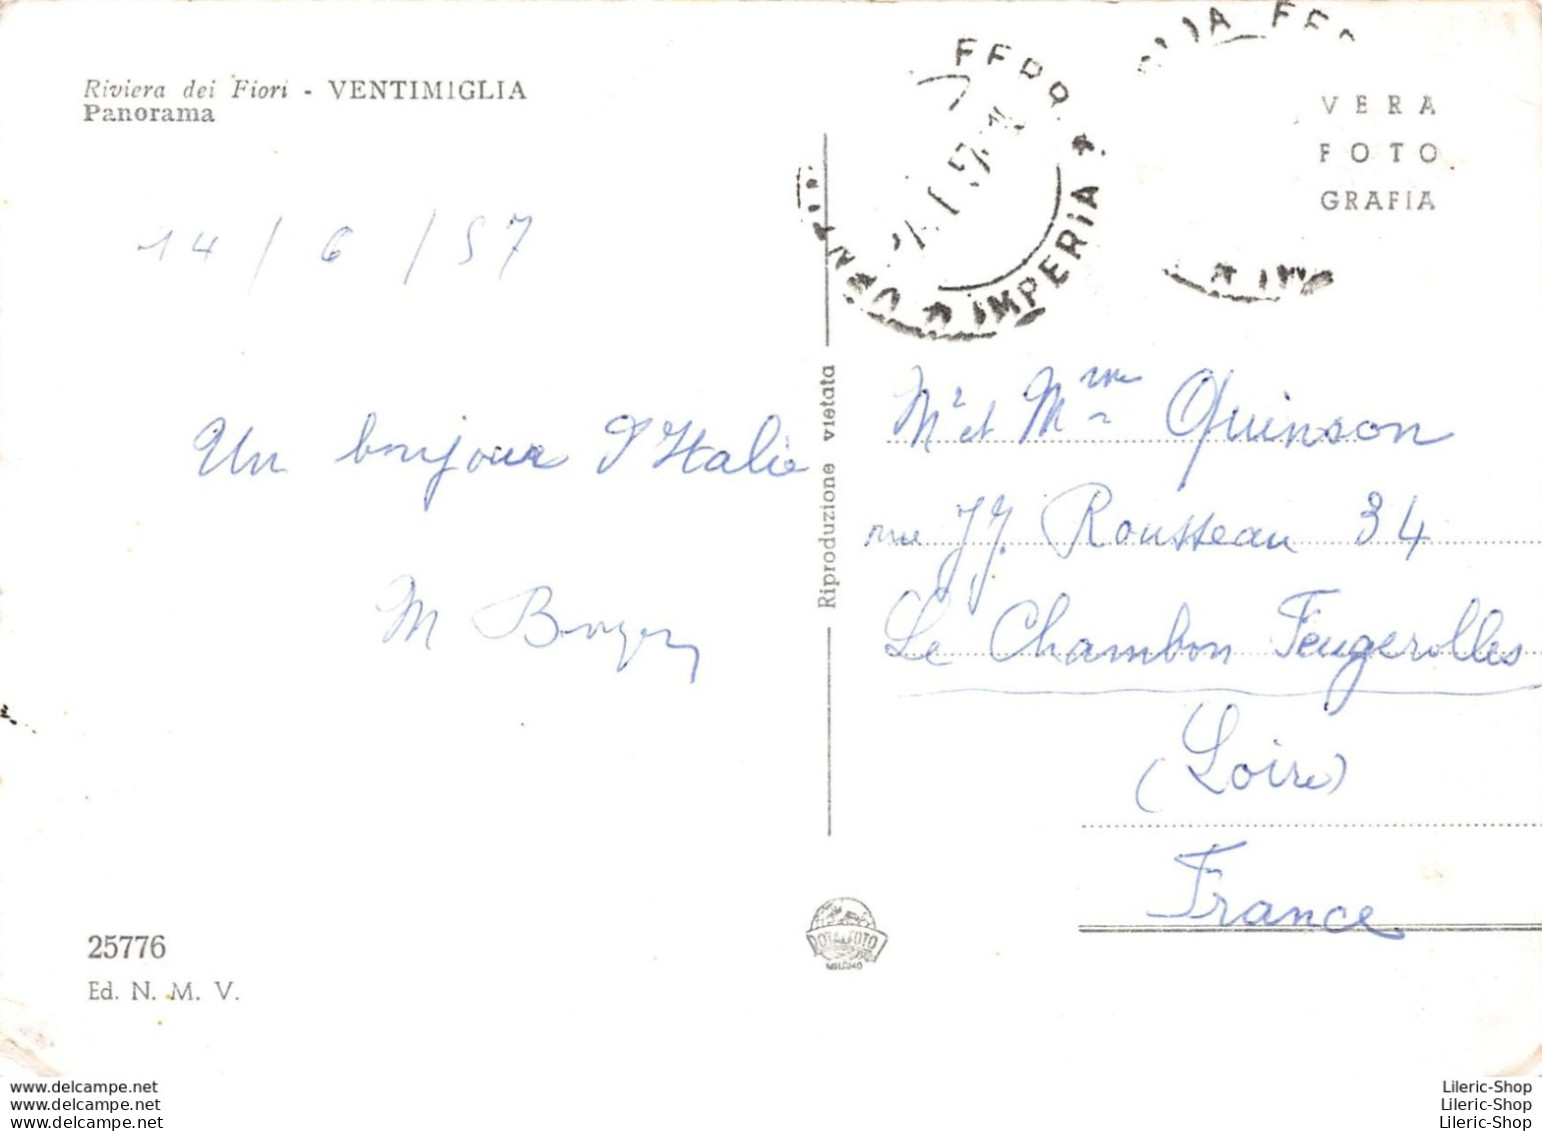 Riviera dei Fiori - VENTIMIGLIA
Panorama
14 / 6 / 57
Un bonjour d'Italie
M
25776
Ed. N. M. V.
Riproduzione vietata
ROTALFOTO
MILANO
FERR
IMPERIA
VERA
FOTO
GRAFIA
Mr et Mme Quinson
rue J.J. Rousseau 34
Le Chambon Feugerolles
(Loire)
France
www.delcampe.net
www.delcampe.net
www.delcampe.net
Lileric-Shop
Lileric-Shop
Lileric-Shop